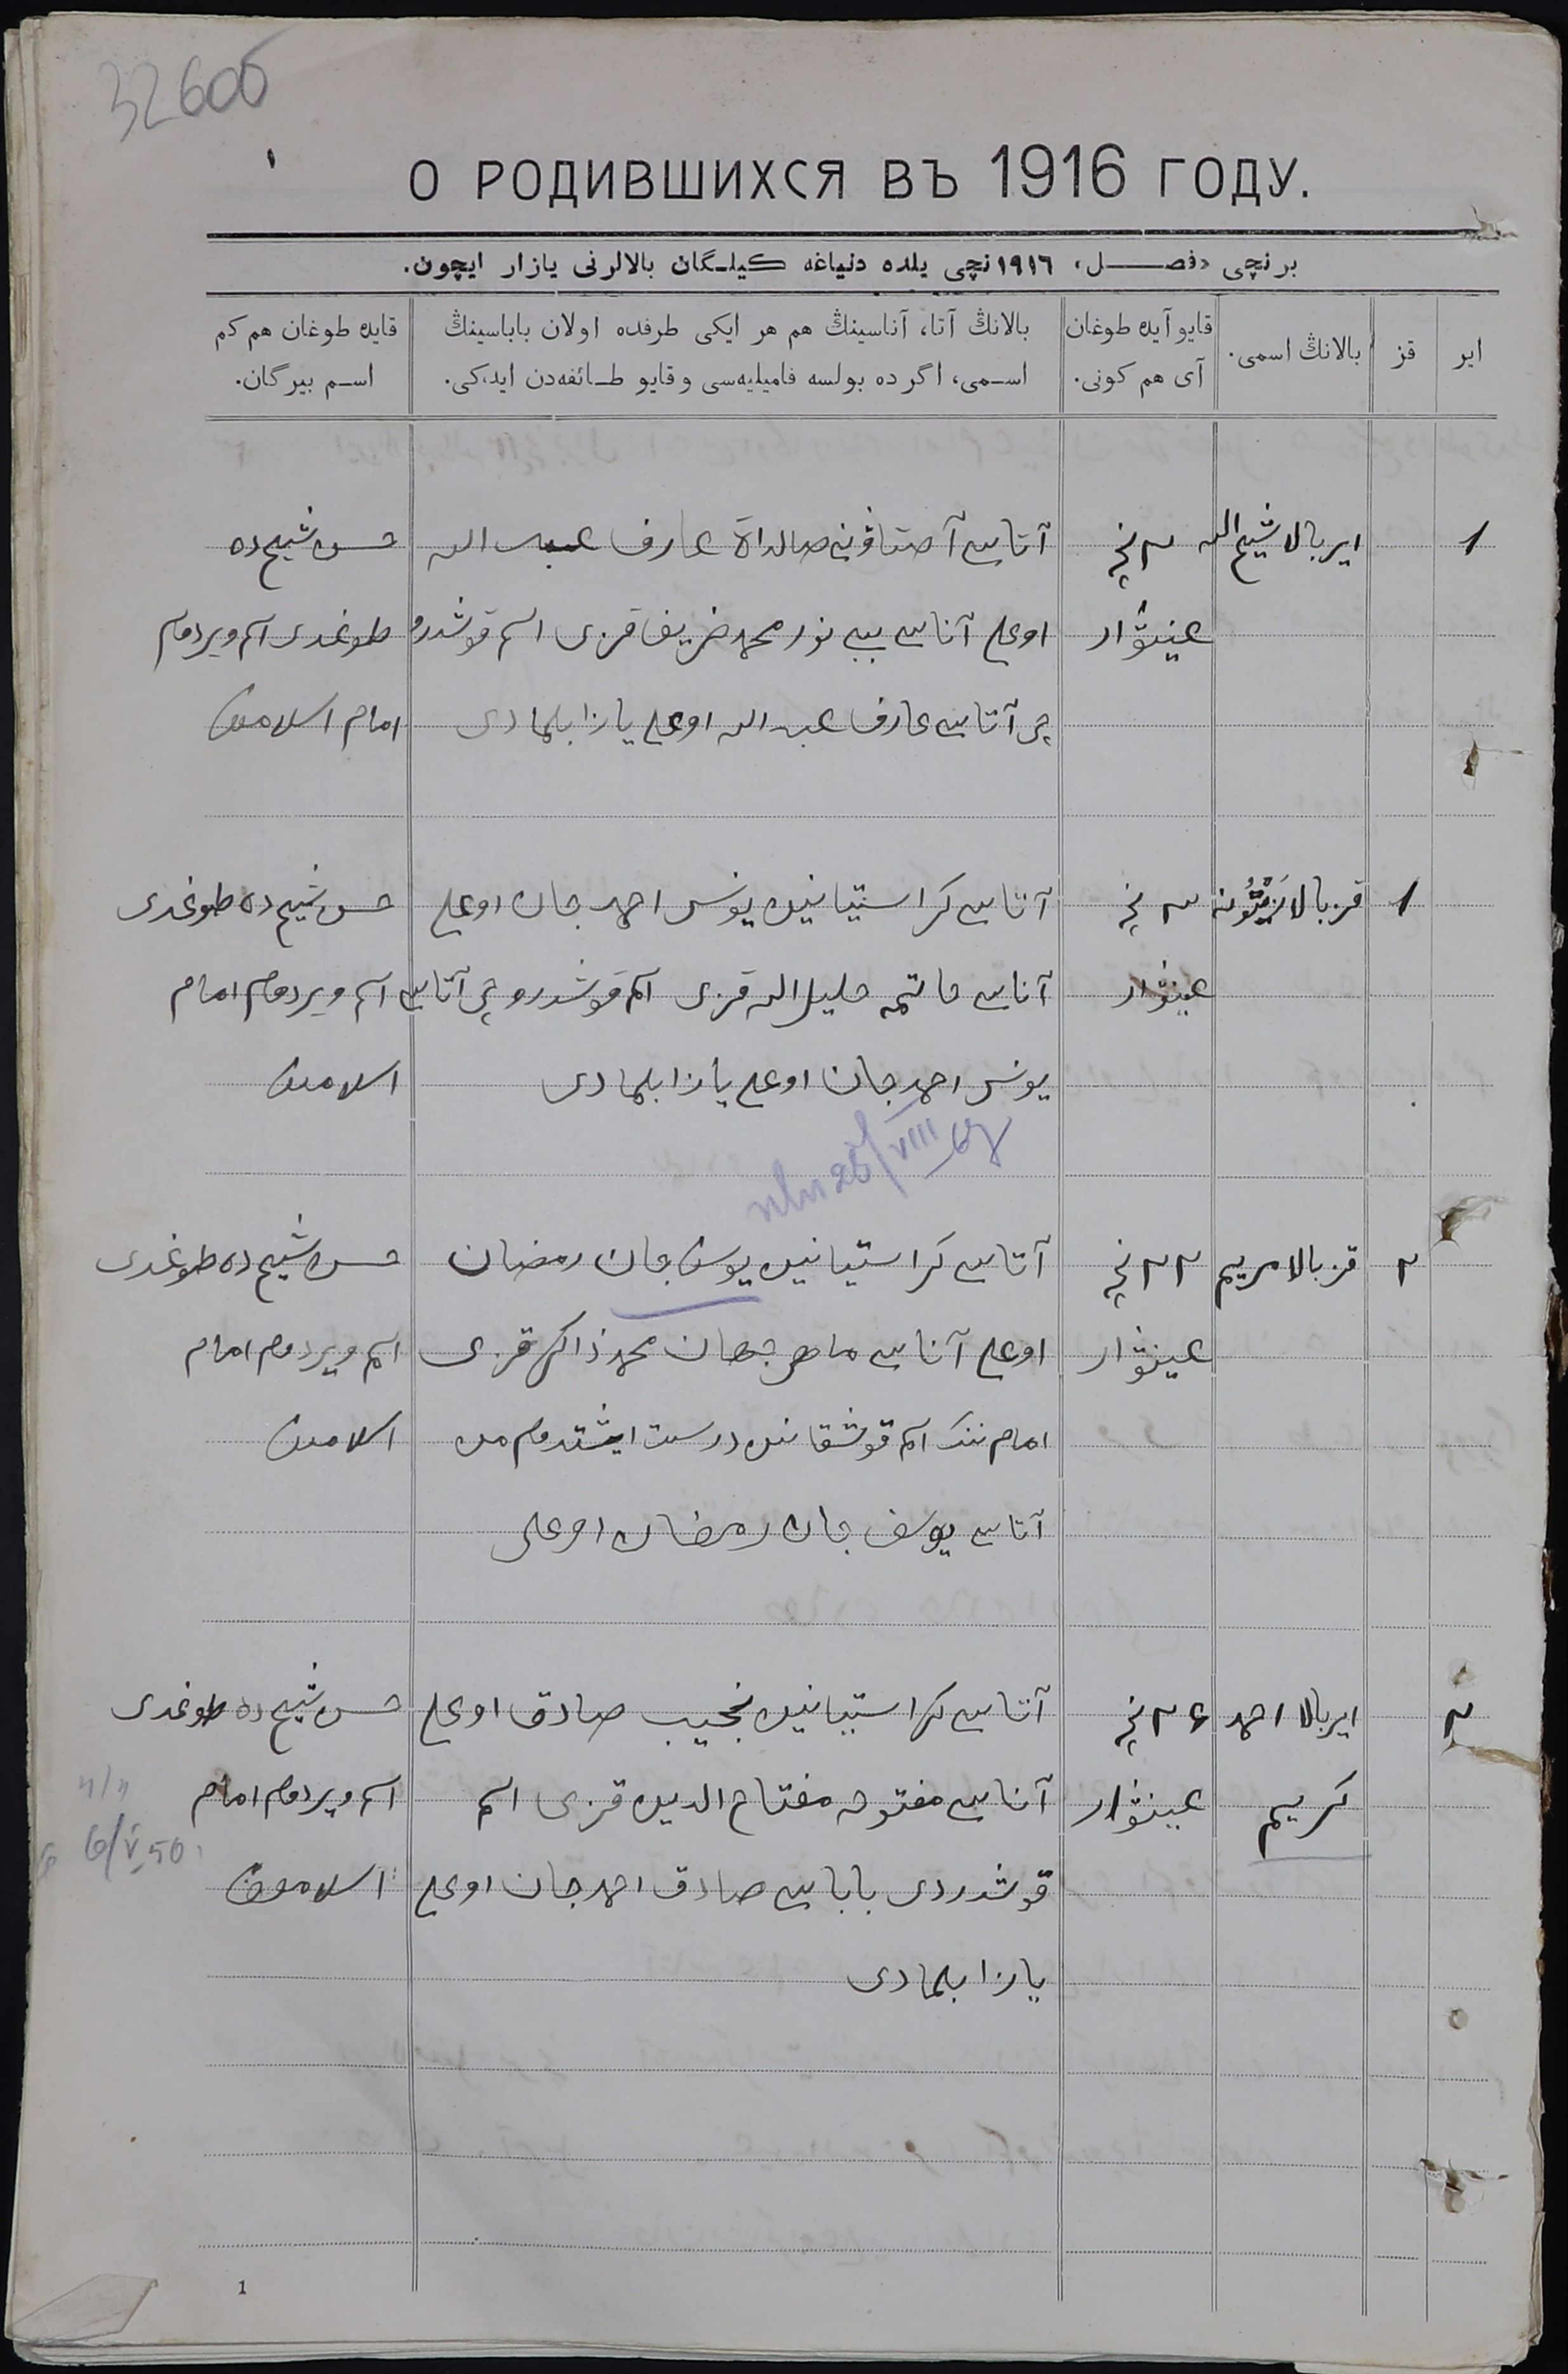 32600
О РОДИВШИХСЯ ВЪ 1916 ГОДУ.
برنچی «فصـــل» ١٩١٦نچی يلده دنياغه كيلـگان بالالرنی يازار ايچون.
اير
قز
بالانڭ اسمی.
قايو آيده طوغان
آی هم كونی.
بالانڭ آتا، آناسينڭ هم هر ايكی طرفده اولان باباسينڭ
اسـمی، اگر ده بولسه فاميليه‌سی و قايو طـائفه‌دن ايدكی.
قايده طوغان هم كم
اسـم بيرگان.
١
اير بالا شيخ الله
٣ نچی
غينۋار
آتاسی آصتاڤنی صالداة عارف عبيد الله
اوغلی آناسی بيبی نور محمد ظريف قزی اسم قوشدرو
چی آتاسی عارف عبد الله اوغلی يازا بلمادی
حسن شيخ ده
طوغدی اسم ويردم
امام اسلاموف
١
قز بالا زيتونه
٣ نچی
غينۋار
آتاسی كراستيانين يونس احمد جان اوغلی
آناسی خليل الله قزی اسم قوشدروچی آتاسی
يونس احمد جان اوغلی يازا بلمادی
حسن شيخ ده طوغدی
اسم ويردم امام
اسلاموف
٢
قز بالا مريم
٢٢ نچی
غينۋار
آتاسی كراستيانين يوسف جان رمضان
اوغلی آناسی ماهر جهان محمد ذاكر قزی
امام ننڭ اسم قوشقانين درست ايشتدم من
آتاسی يوسف جان رمضان اوغلی
حسن شيخ ده طوغدی
اسم ويردم امام
اسلاموف
٢
اير بالا احمد
كريم
٢٤ نچی
غينۋار
آتاسی كراستيانين نجيب صادق اوغلی
آناسی مفتوحه مفتاح الدين قزی اسم
قوشدردی باباسی صادق احمد جان اوغلی
يازا بلمادی
حسن شيخ ده طوغدی
اسم ويردم امام
اسلاموف
6/V 50
1